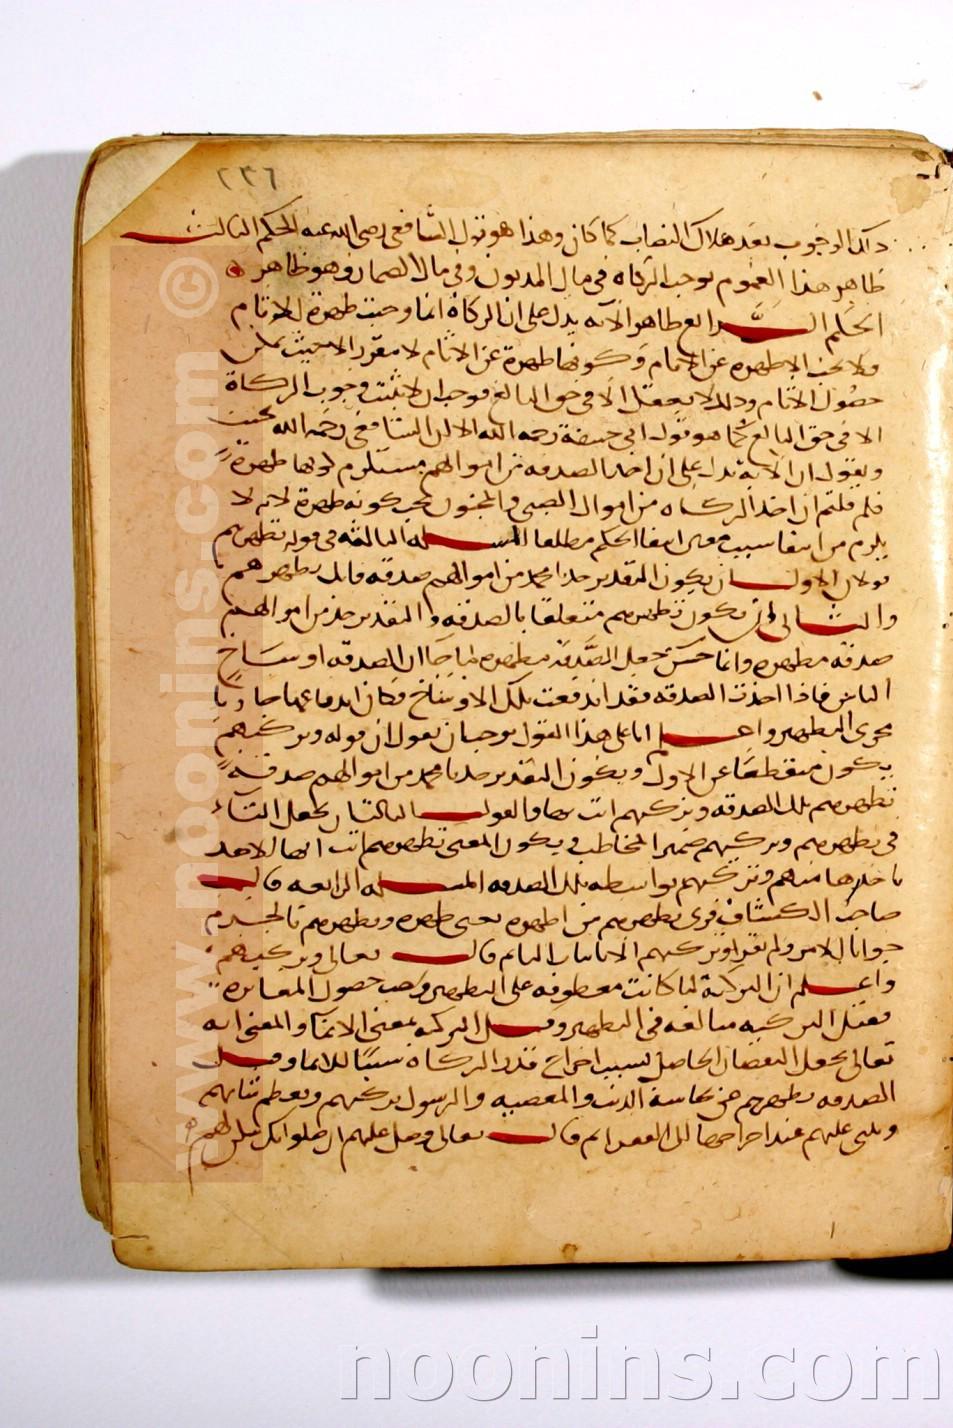 ٢٣٦
ذلك الوجوب بعد هلاك النصاب كما كان وهذا هو قول الشافعي رضي الله عنه الحكم الثالث
ظاهر هذا العموم يوجب الزكاه في مال المديون وفي مال الضمار وهو ظاهر
الحكم الرابع ظاهر الآيه يدل على ان الزكاة انما وجبت طهرة للآثام
ولا تجب الا طهره عن الآثام وكونها طهرة عن الآثام لا يتقرر الا حيث يمكن
حصول الآثام وذلك لا يعقل الا في حق البالغ فوجب ان لا يثبت وجوب الزكاة
الا في حق البالغ كما هو قول ابي حنيفة رحمه الله الا ان الشافعي رحمه الله يجيب
ويقول ان الآية تدل على ان اخذ الصدقه من اموالهم يستلزم كونها طهرة
فلم قلتم ان اخذ الزكاه من اموال الصبي والمجنون يجب كونه طهرة لانه لا
يلزم من انتفا سبب معين انتفا الحكم مطلقا المسئله الثالثه في قوله تطهرهم
قولان الاول ان يكون التقدير خذ يا محمد من اموالهم صدقه فانك تطهرهم
والثاني ان يكون تطهرهم متعلقا بالصدقه والتقدير خذ من اموالهم
صدقه مطهره وانما حسن جعل الصدقه مطهره لما جا ان الصدقه اوساخ
الناس فاذا اخذت الصدقه فقد اندفعت تلك الاوساخ فكان اندفاعها جاريا
مجرى التطهير واعلم انا على هذا القول يوجب ان نقول ان قوله وتزكيهم
يكون منقطعا عن الاول ويكون التقدير خذ يا محمد من اموالهم صدقة
تطهرهم تلك الصدقه وتزكيهم انت بها والقول الثالث ان يجعل التاء
في تطهرهم وتزكيهم ضمير المخاطب ويكون المعنى تطهرهم انت ايها الآخذ
باخذها منهم وتزكيهم بواسطه تلك الصدقه المسئله الرابعه قال
صاحب الكشاف قرى تطهرهم من اطهره بمعنى طهره وتطهرهم بالجزم
جوابا للامر ولم يقرا وتزكيهم الا باثبات اليا ثم قال تعالى وتزكيهم
واعلم ان التزكية لما كانت معطوفه على التطهير وجب حصول المغايره
فقيل التزكيه مبالغه في التطهير وقيل التزكيه بمعنى الانما والمعنى انه
تعالى يجعل النقصان الحاصل بسبب اخراج قدر الزكاه سببا للانما وقيل
الصدقه تطهرهم عن نجاسة الذنب والمعصيه والرسول يزكيهم ويعظم شانهم
ويثنى عليهم عند اخراجها الى الفقرا ثم قال تعالى وصل عليهم ان صلواتك سكن لهم
www.noonins.com ©
noonins.com